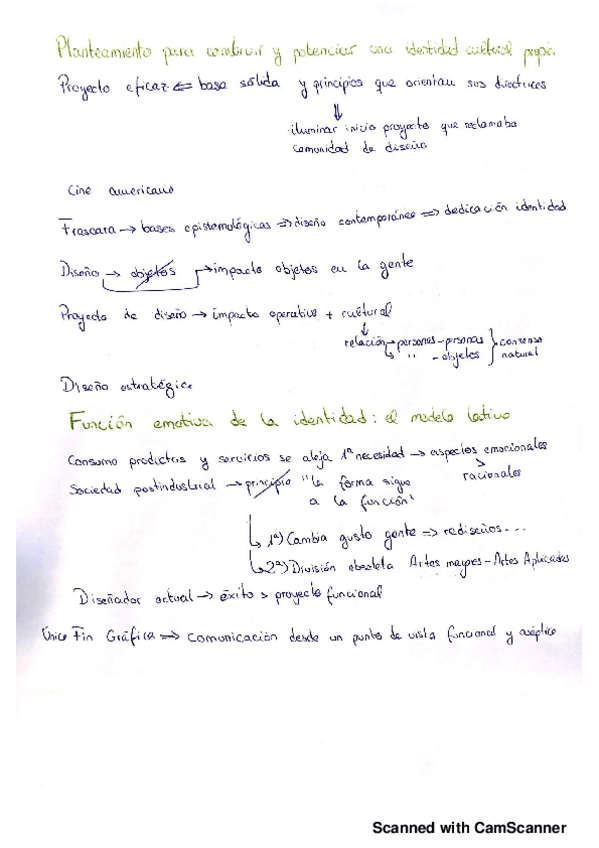 Planteamiento para construir y potenciar una identidad cultural propia.
Proyecto eficaz ⇐ base sólida y principios que orientan sus directrices
⇓
iluminar inicio proyecto que reclamaba
comunidad de diseño
Cine americano
Frascara → bases epistemológicas ⇒ diseño contemporáneo ⇒ dedicación identidad
Diseño → objetos → impacto objetos en la gente
Proyecto de diseño → impacto operativo + cultural
↓
relación → personas - personas } consenso
↳ " - objetos } natural
Diseño estratégico
Función emotiva de la identidad: el modelo latino
Consumo productos y servicios se aleja 1ª necesidad → aspectos emocionales
>
racionales
Sociedad postindustrial → principio "la forma sigue
a la función"
↳ 1º) Cambia gusto gente ⇒ rediseños...
↳ 2º) División obsoleta Artes mayores - Artes Aplicadas
Diseñador actual → éxito > proyecto funcional
Único Fin Gráfica ⇒ comunicación desde un punto de vista funcional y aséptico
Scanned with CamScanner